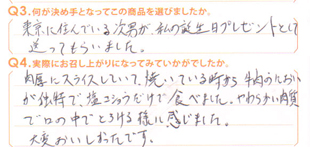 Q3.何が決め手となってこの商品を選びましたか。
東京に住んでいる次男が、私の誕生日プレゼントとして
送ってもらいました。
Q4.実際にお召し上がりになってみていかがでしたか。
肉厚にスライスしていて、焼いている時から牛肉のにおい
が独特で、塩コショウだけで食べました。やわらかい肉質
で口の中でとろける様に感じました。
大変おいしかったです。